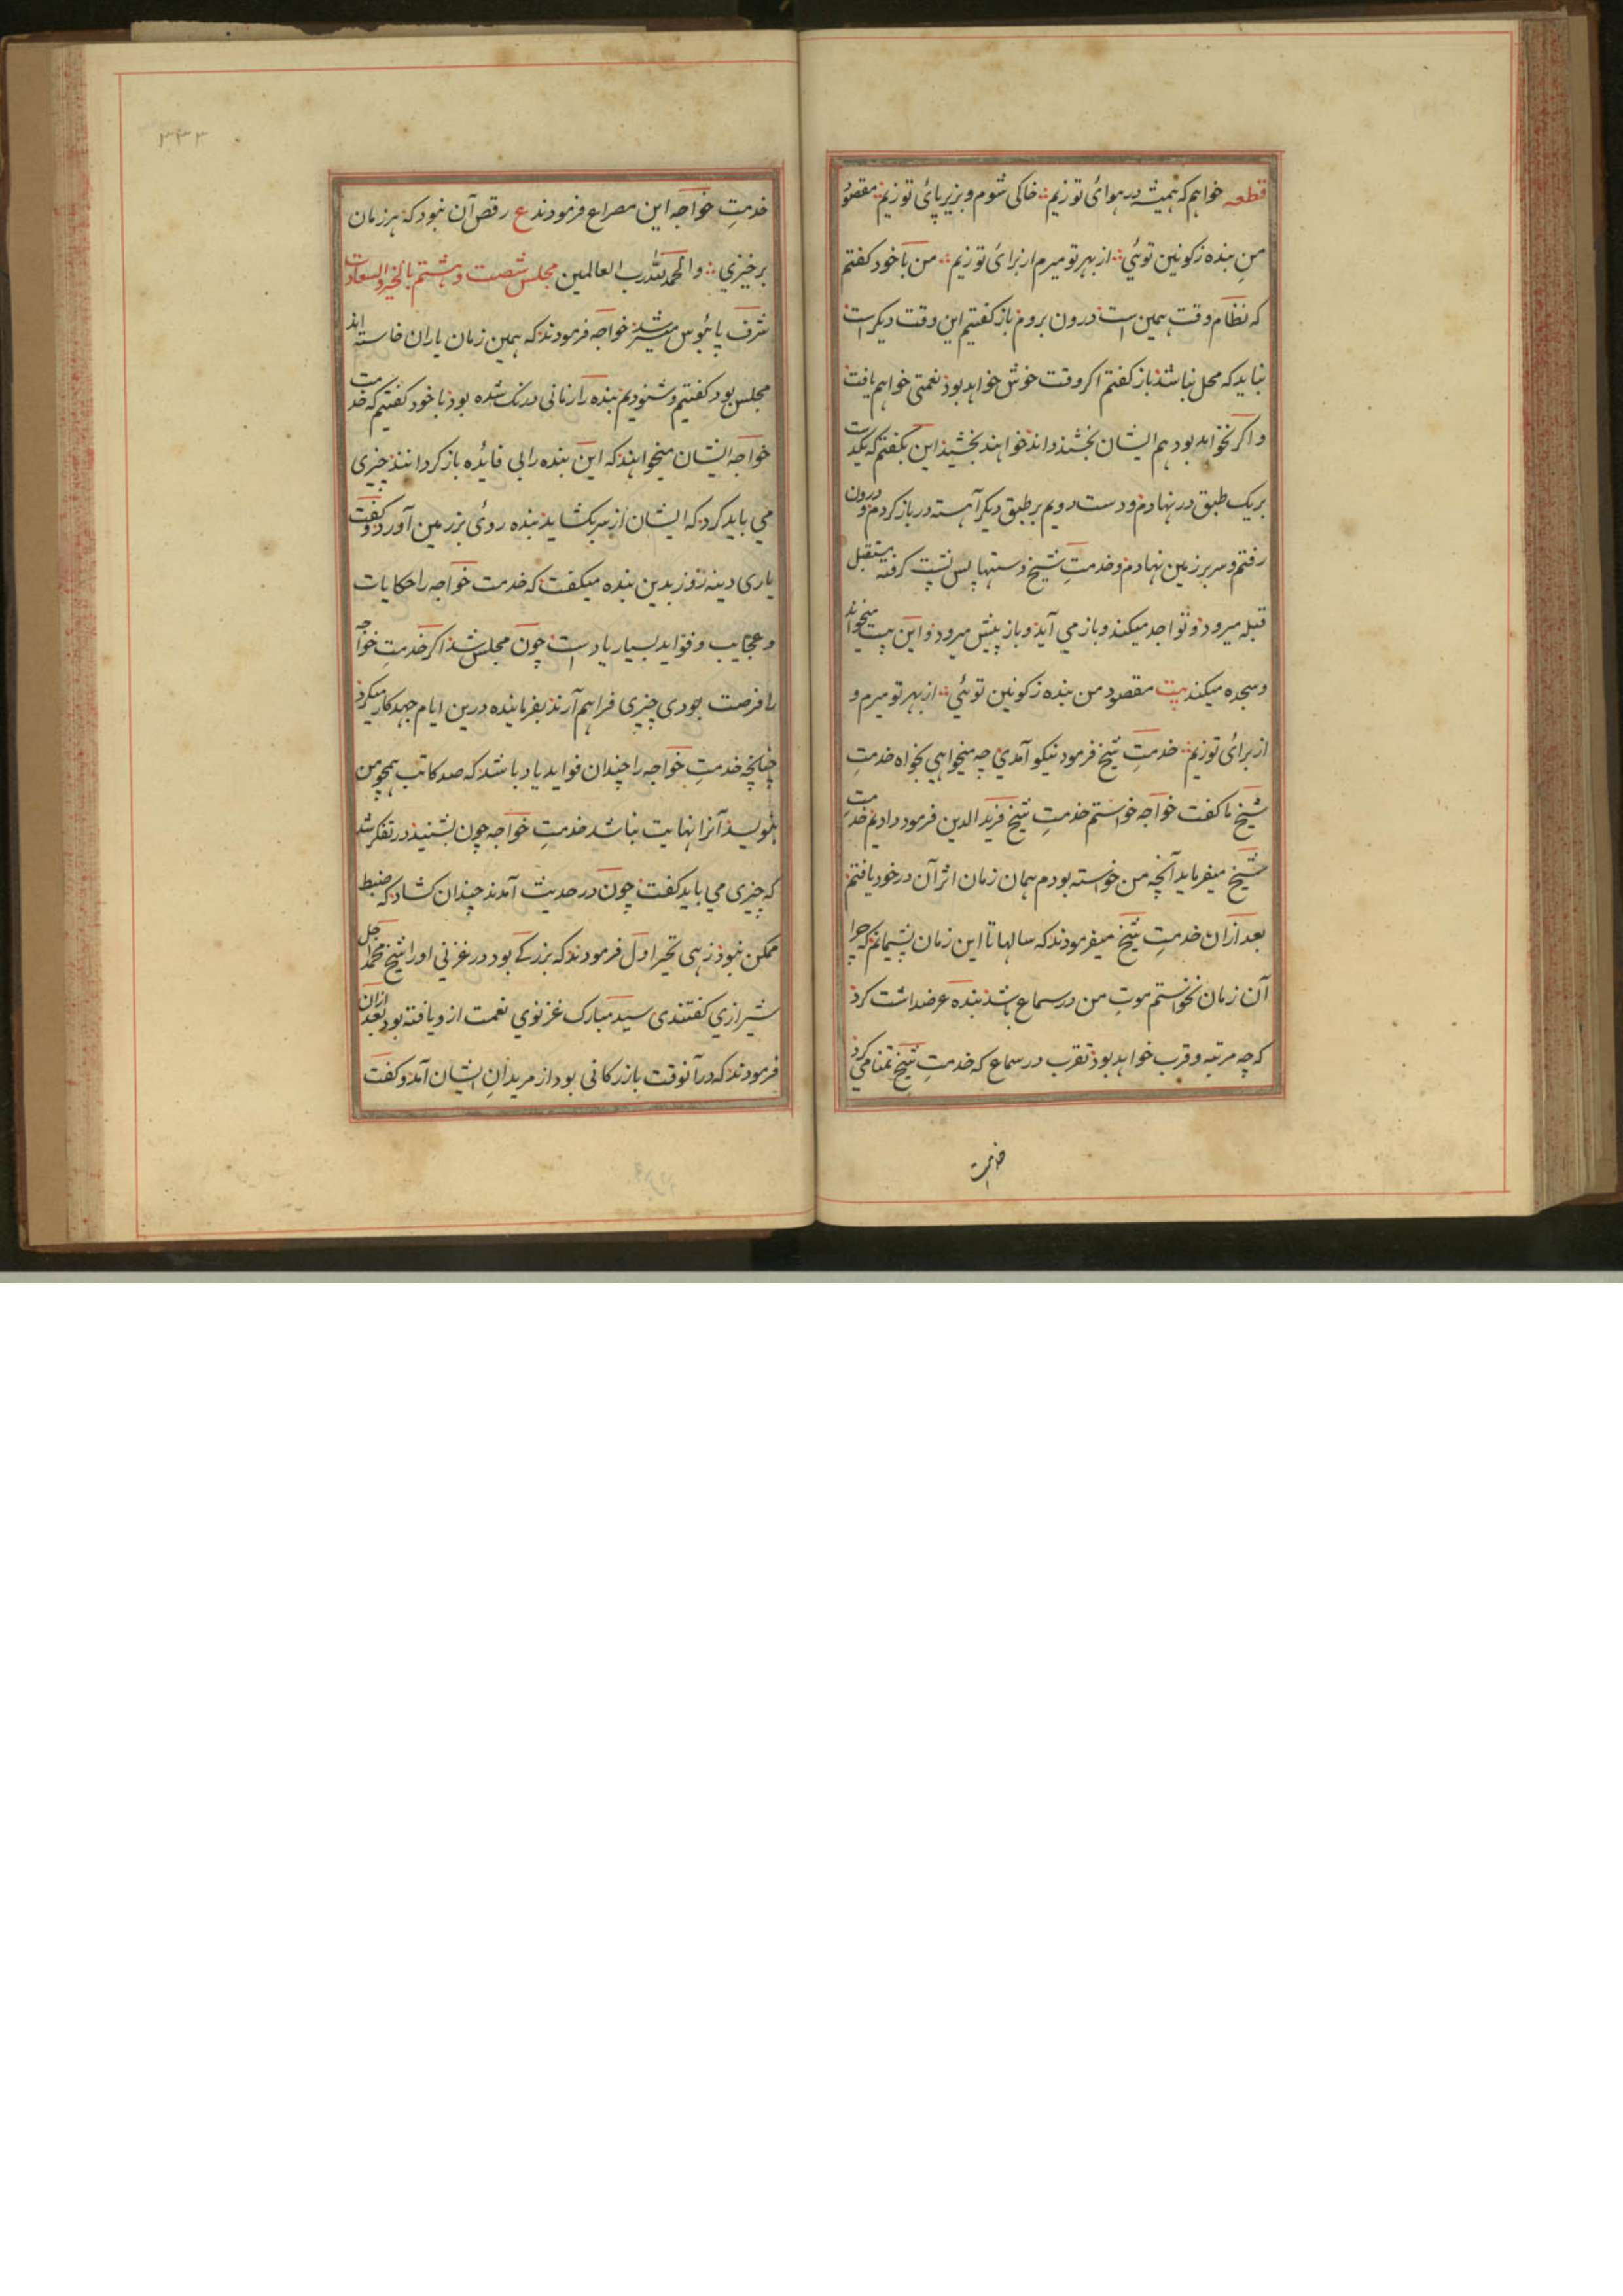 قطعه خواهم که همیشه در هوائی تو زیم خاکی شوم و بزیر پائی تو زیم مقصود
من بنده ز کونین توئی از بهر تو میرم از برائی تو زیم من با خود گفتم
که نظام وقت همین است درون بروم باز گفتیم این وقت دیگر است
نباید که محل نباشد باز گفتم اگر وقت خوش خواهد بود نعمتی خواهم یافت
و اگر نخواهد بود هم ایشان بخشنده‌اند خواهند بخشید این بگفتم که یکدست
بر یک طبق در نهادم و دست دویم بر طبق دیگر آهسته در باز کردم و درون
رفتم و سر بر زمین نهادم و خدمتِ شیخ دستها پس پشت گرفته مستقبل
قبله میرود و تواجد میکند و باز می آید و باز پیش میرود و این بیت میخواند
و سجده میکند بیت مقصود من بنده ز کونین توئی از بهر تو میرم و
از برائی تو زیم خدمتِ شیخ فرمود نیکو آمدی چه میخواهی بخواه خدمتِ
شیخ ما گفت خواجه خواستم خدمتِ شیخ فرید الدین فرمود دادیم خدمت
شیخ میفرماید آنچه من خواسته بودم همان زمان اثر آن در خود یافتم
بعد ازان خدمتِ شیخ میفرمودند که سالها تا این زمان پشیمانم که چرا
آن زمان نخواستم موتِ من در سماع باشد بنده عرضداشت کرد
که چه مرتبه و قرب خواهد بود تقرب در سماع که خدمتِ شیخ تمنا می کرد
خدمت
۳۴۳
خدمتِ خواجه این مصراع فرمودند ع رقص آن نبود که هر زمان
برخیزی والحمد لله رب العالمین مجلس شصت و هشتم بالخیر والسعادت
شرف پائبوس میسر شد خواجه فرمودند که همین زمان یاران خاسته اند
مجلس بود گفتیم و شنودیم بنده را زمانی درنگ شده بود با خود گفتیم که خدمت
خواجه ایشان میخواهند که این بنده را بی فائده باز گردانند چیزی
می باید کرد که ایشان از سر بکشاید بنده روئی بر زمین آورد و گفت
یاری دینه روز بدین بنده میگفت که خدمت خواجه را حکایات
و عجایب و فواید بسیار یاد است چون مجلس شد اگر خدمتِ خواجه
را فرصت بودی چیزی فراهم آرند بفرمایند درین ایام جهد کار میکرد
چنانچه خدمتِ خواجه را چندان فواید یاد باشد که صد کاتب همچو من
بنویسد آنرا نهایت نباشد خدمتِ خواجه چون بشنید در تفکر شد
که چیزی می باید گفت چون در حدیث آمدند چندان کشاد که ضبط
ممکن نبود زهی تحیر اول فرمودند که بزرگی بود در غزنی او را شیخ محمد اجل
شیرازی گفتندی سید مبارک غزنوی نعمت ازو یافته بود بعد ازان
فرمودند که در آنوقت بازرگانی بود از مریدانِ ایشان آمد و گفت